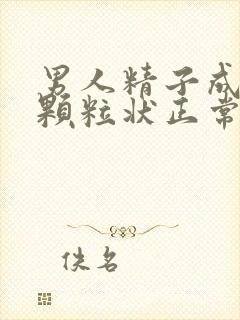 男人精子成
顆粒狀正常
佚名